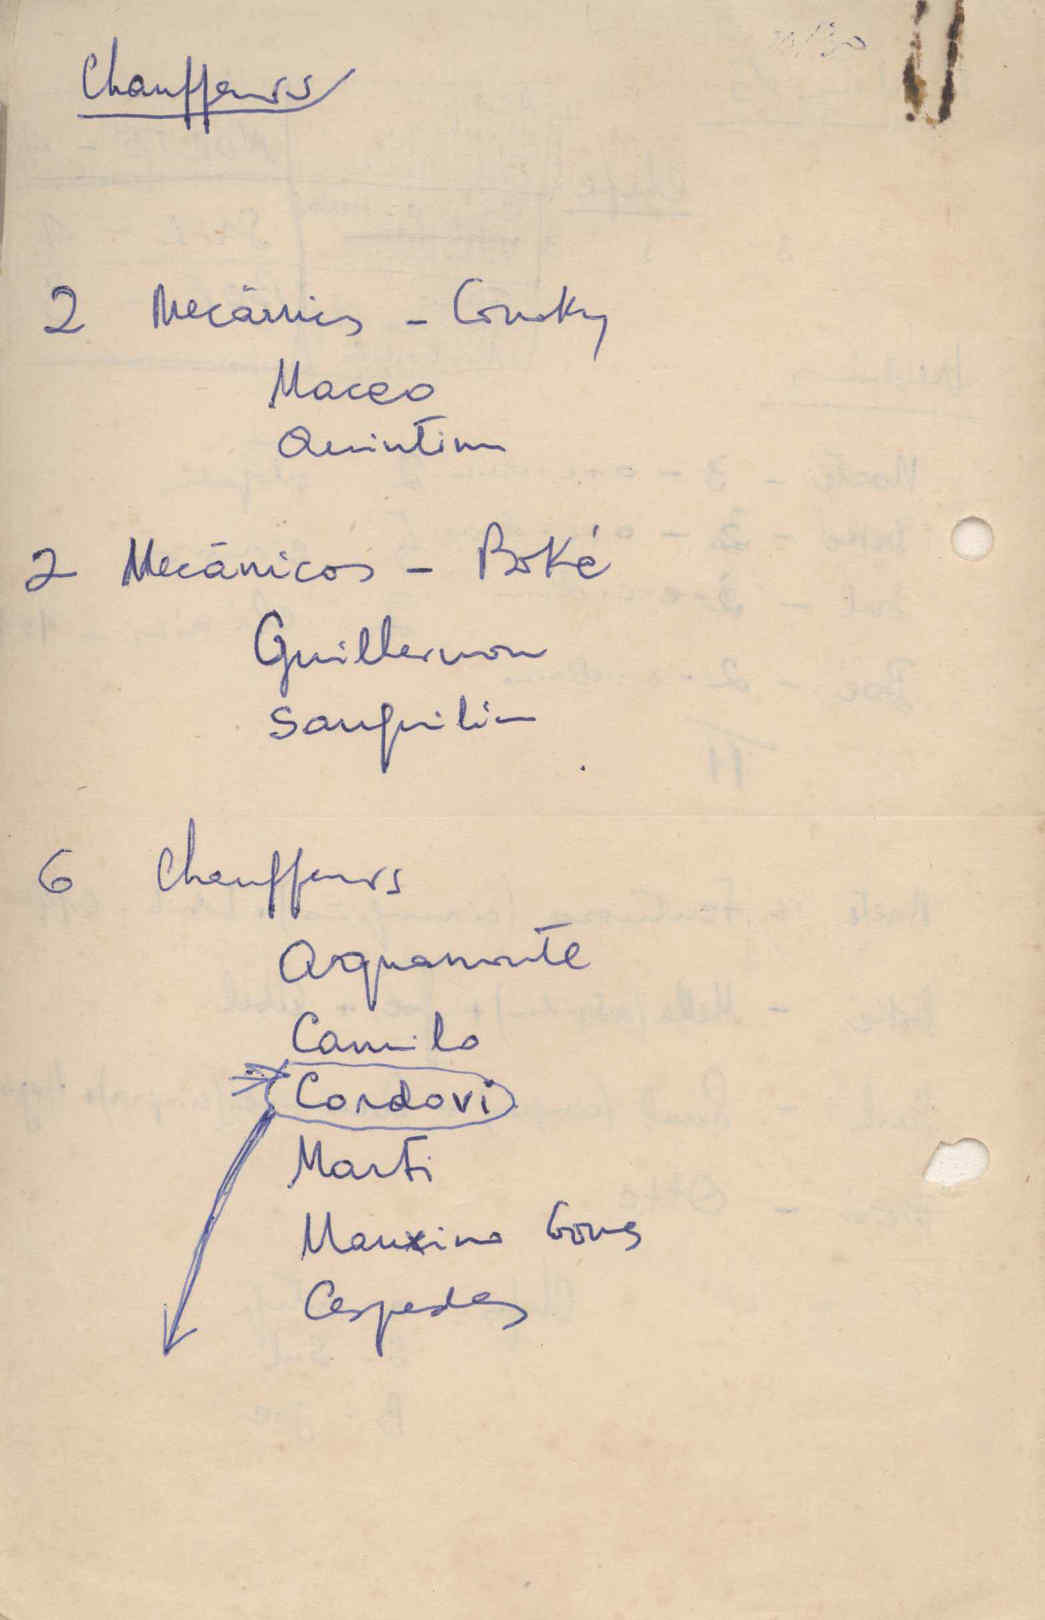 Chauffeurs
2 Mecânicos - Conakry
Maceo
Quintim
2 Mecânicos - Boké
Guillermon
Sanguilin
6 Chauffeurs
Aguamonte
Camilo
Cordovi
Marti
Maximo Gomes
Cespedes